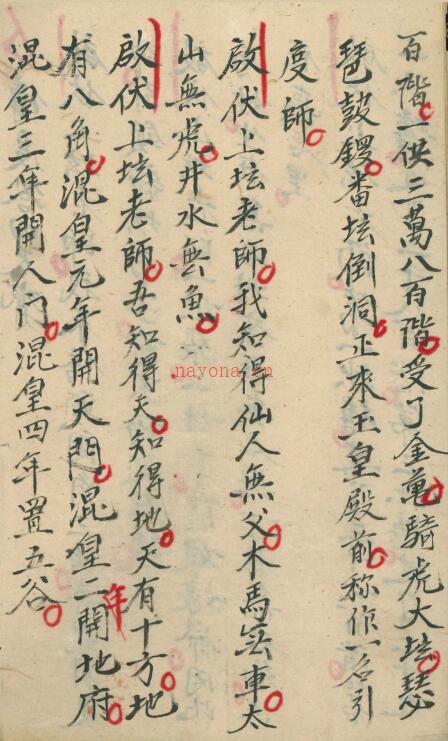 百階一供三萬八百階受了金亀騎虎大坛瑟
琶鼓鑼番坛倒洞正來玉皇殿前称作一名引
度師
啟伏上坛老師我知得仙人無父木馬無車太
山無虎井水無魚
啟伏上坛老師吾知得天知得地天有十方地
有八角混皇元年開天門混皇二年開地府
混皇三年開人门混皇四年置五谷
nayona.cn